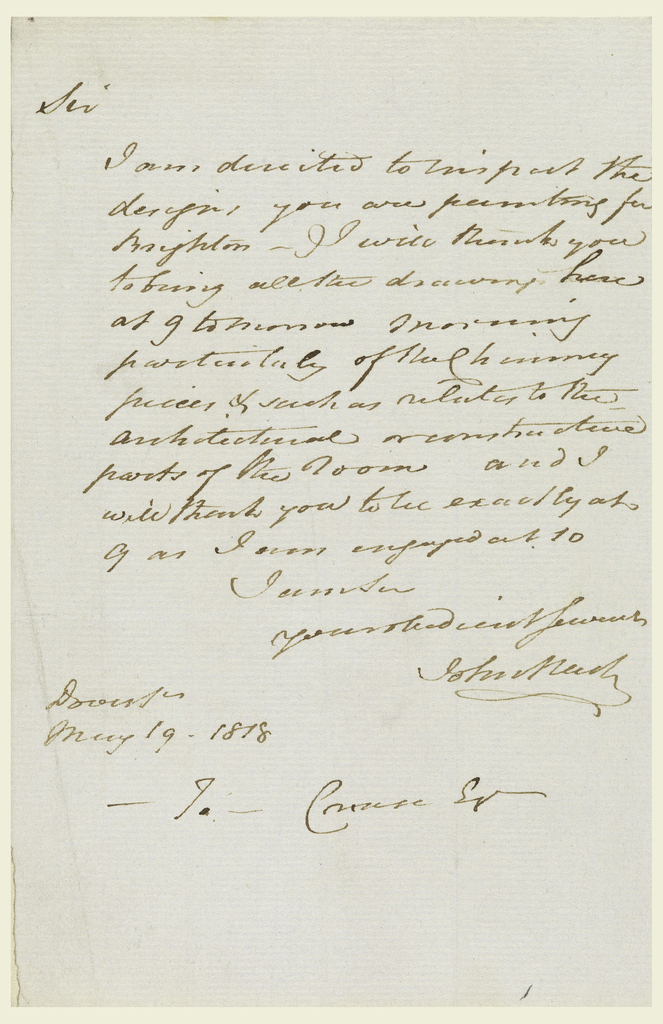 Sir
I am directed to inspect the
designs you are painting for
Brighton – & I will thank you
to bring all the drawings here
at 9 tomorrow morning
particularly of the Chimney
pieces & such as relates to the
architectural or constructive
parts of the Room and I
will thank you to be exactly at
9 as I am engaged at 10
I am Sir
your obedient Servant
John Nash
May 19 - 1818
– To – Crace Esq